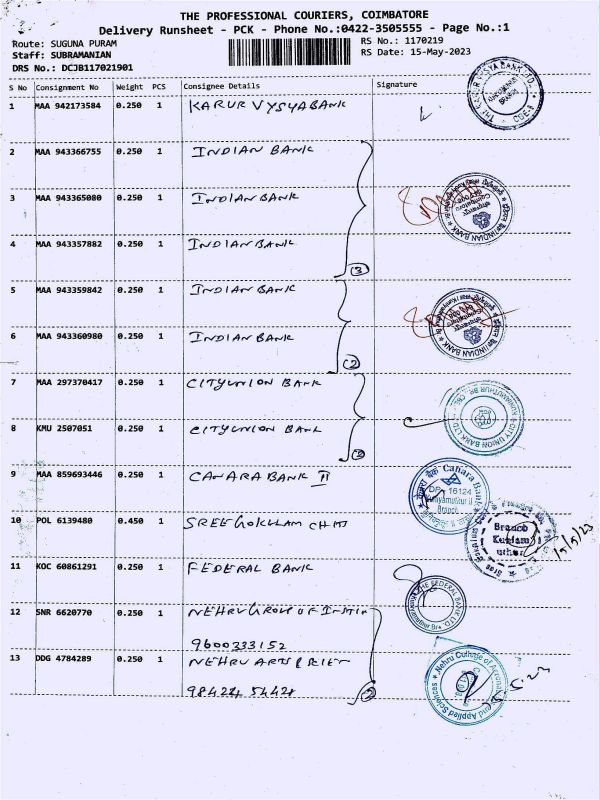 THE PROFESSIONAL COURIERS, COIMBATORE
Delivery Runsheet - PCK - Phone No.:0422-3505555 - Page No.:1
Route: SUGUNA PURAM
RS No.: 1170219
Staff: SUBRAMANIAN
RS Date: 15-May-2023
DRS No.: DCJB117021901
S No Consignment No Weight PCS Consignee Details Signature
1 MAA 942173584 0.250 1 KARUR VYSYA BANK
2 MAA 943366755 0.250 1 INDIAN BANK
3 MAA 943365080 0.250 1 INDIAN BANK
4 MAA 943357882 0.250 1 INDIAN BANK
(3)
5 MAA 943359842 0.250 1 INDIAN BANK
6 MAA 943360980 0.250 1 INDIAN BANK
(2)
7 MAA 297370417 0.250 1 CITYUNION BANK
8 KMU 2507051 0.250 1 CITYUNION BANK
(2)
9 MAA 859693446 0.250 1 CANARA BANK II
10 POL 6139480 0.450 1 SREE GOKULAM CHIT
15/5/23
11 KOC 60861291 0.250 1 FEDERAL BANK
12 SNR 6620770 0.250 1 NEHRU GROUP OF
9600333152
13 DDG 4784289 0.250 1 NEHRU ARTS
(2)
Canara Bank
DP 16124
Branch
THE FEDERAL BANK LTD
Nehru College of Aeronautics and Applied Sciences